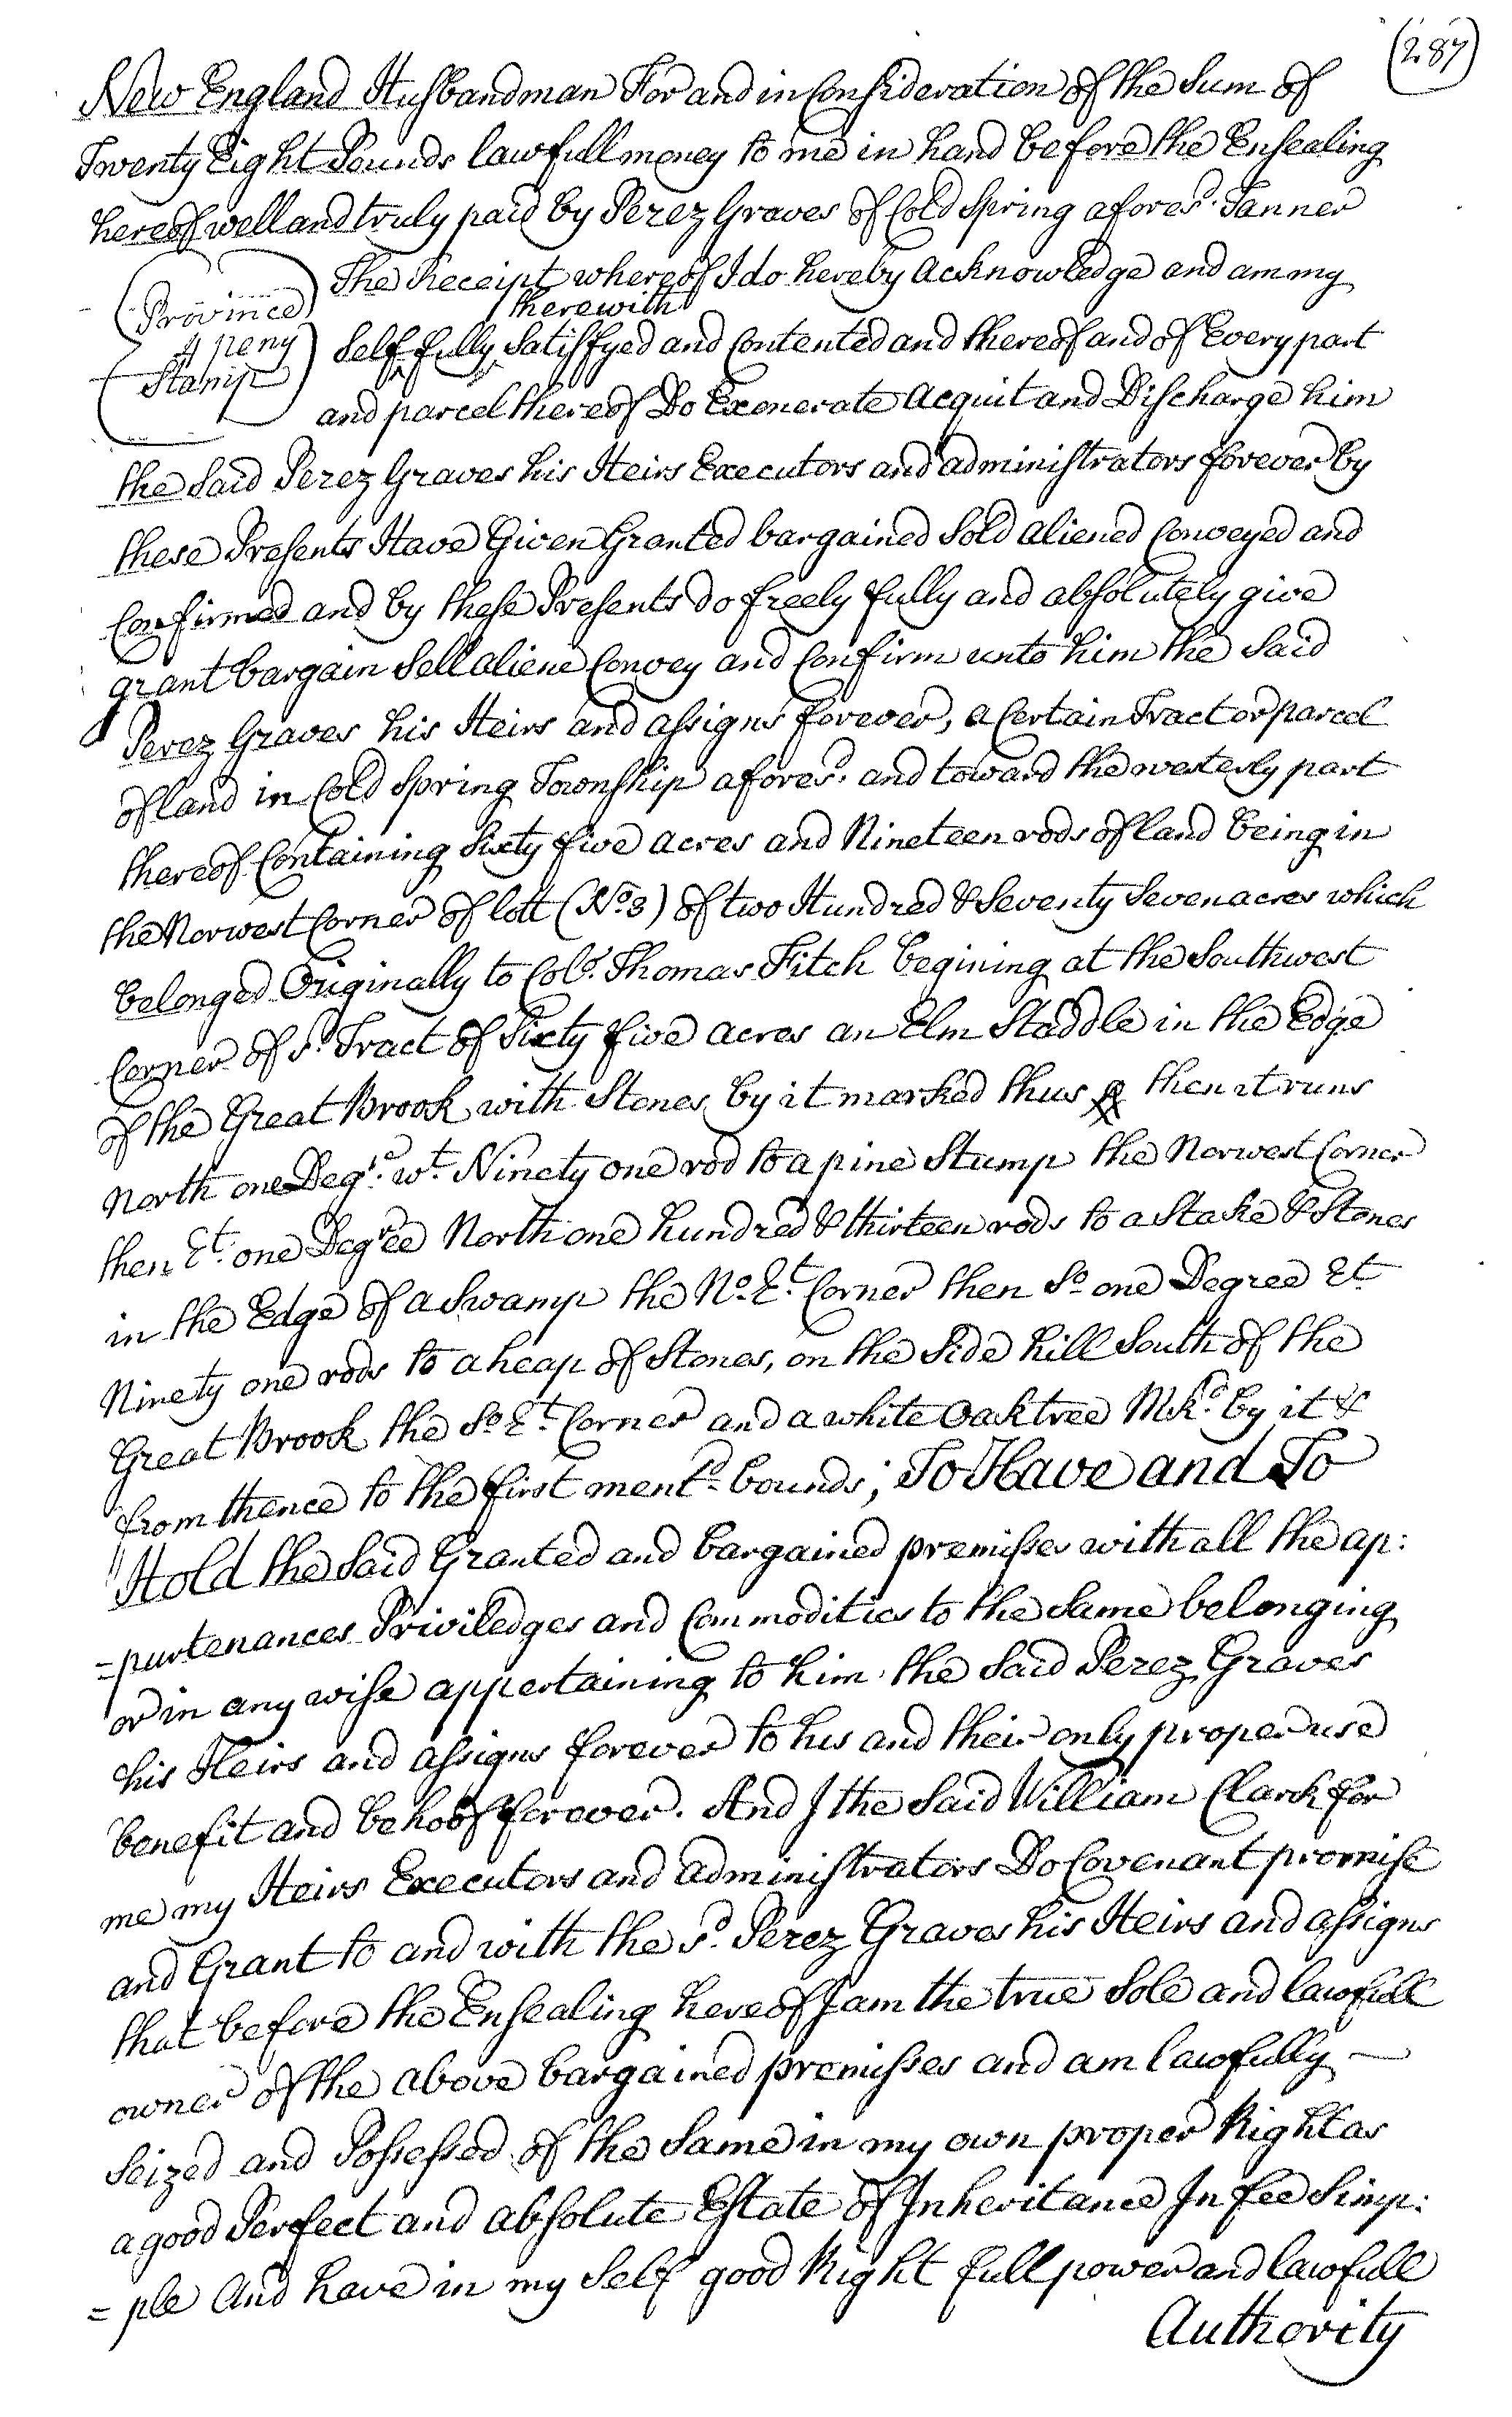 (287)
New England Husbandman For and in Consideration of the Sum of
Twenty Eight Pounds lawfull money to me in hand before the Ensealing
hereof well and truly paid by Perez Graves of Cold Spring afores.d Tanner
The Receipt whereof I do hereby Acknowledge and am my
Province
4 peny
Stamp
therewith
Self fully Satisfyed and Contented and thereof and of Every part
and parcel thereof Do Exonerate Acquit and Discharge him
the Said Perez Graves his Heirs Executors and administrators forever by
these Presents Have Given Granted bargained Sold aliened Conveyed and
Confirmed and by these Presents do freely fully and absolutely give
grant bargain Sell aliene Convey and Confirm unto him the Said
Perez Graves his Heirs and assigns forever, a Certain Tract or parcel
of land in Cold Spring Township afores.d and toward the westerly part
thereof Containing Sixty five acres and Nineteen rods of land being in
the Norwest Corner of lott (No. 3) of two Hundred & Seventy Seven acres which
belonged Originally to Colo. Thomas Fitch begining at the Southwest
Corner of s.d Tract of Sixty five acres an Elm Staddle in the Edge
of the Great Brook with Stones by it marked thus then it runs
North one Degre. w.t Ninety one rod to a pine Stump the Norwest Corner
then E.t one Degree North one hundred & thirteen rods to a Stake & Stones
in the Edge of a Swamp the No. E.t Corner then So. one Degree Et
Ninety one rods to a heap of Stones, on the Side hill South of the
Great Brook the So. E.t Corner and a white Oak tree Mk.d by it &
from thence to the first ment.d bounds; To Have and To
Hold the Said Granted and bargained premisses with all the ap:
=purtenances Priviledges and Commodities to the Same belonging
or in any wise appertaining to him the Said Perez Graves
his Heirs and assigns forever to his and their only proper use
benefit and behoof forever. And I the Said William Clark for
me my Heirs Executors and administrators Do Covenant promise
and Grant to and with the s.d Perez Graves his Heirs and assigns
that before the Ensealing hereof I am the true Sole and lawfull
owner of the above bargained premisses and am lawfully —
Seized and Possessed of the Same in my own proper Right as
a good Perfect and absolute Estate of Inheritance In fee Simp:
=ple And have in my Self good Right full power and lawfull
Authority